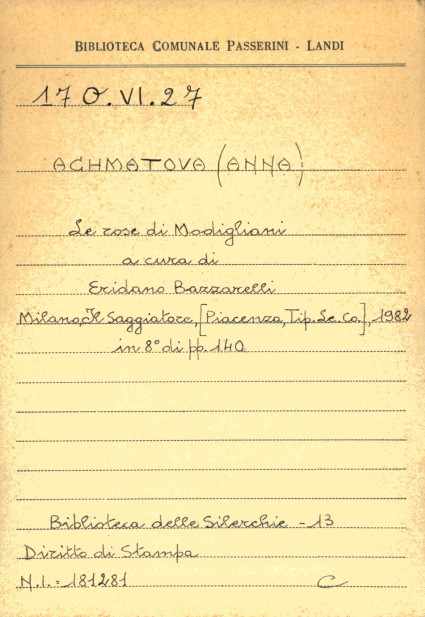 BIBLIOTECA COMUNALE PASSERINI - LANDI
17 O.VI.27
ACHMATOVA (ANNA)
Le rose di Modigliani
a cura di
Eridano Bazzarelli
Milano, Il Saggiatore, [Piacenza, Tip. Le. Co.], 1982
in 8° di pp. 140
Biblioteca delle Silerchie - 13
Diritto di Stampa
N.I. = 181281 C